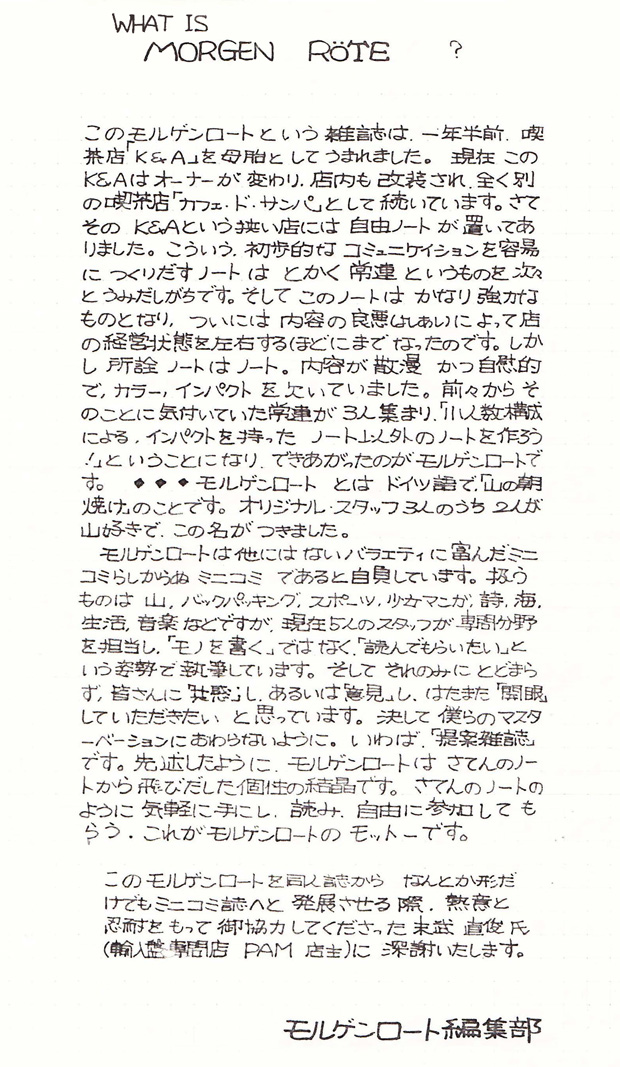 WHAT IS
MORGEN RÖTE ?
このモルゲンロートという雑誌は、一年半前、喫
茶店「K&A」を母胎としてうまれました。現在この
K&Aはオーナーが変わり、店内も改装され、全く別
の喫茶店「カフェ・ド・サンパ」として続いています。さて
そのK&Aという狭い店には自由ノートが置いてあ
りました。こういう、初歩的なコミュニケイションを容易
につくりだすノートはとかく常連というものを次々
とうみだしがちです。そしてこのノートはかなり強力な
ものとなり、ついには内容の良悪(よしあし)によって店
の経営状態を左右するほどにまでなったのです。しか
し所詮ノートはノート。内容が散漫かつ自慰的
で、カラー、インパクトを欠いていました。前々からそ
のことに気付いていた常連が3人集まり、「小人数構成
による、インパクトを持ったノート以外のノートを作ろう
!」ということになり、できあがったのがモルゲンロートで
す。◆◆◆モルゲンロートとはドイツ語で「山の朝
焼け」のことです。オリジナル・スタッフ3人のうち2人が
山好きで、この名がつきました。
モルゲンロートは他にはないバラエティに富んだミニ
コミらしからぬミニコミであると自負しています。扱う
ものは山、バックパッキング、スポーツ、少女マンガ、詩、海、
生活、音楽などですが、現在5人のスタッフが専門分野
を担当し、「モノを書く」ではなく、「読んでもらいたい」と
いう姿勢で執筆しています。そしてそれのみにとどまら
ず、皆さんに「共感」し、あるいは「意見」し、はたまた「開眼」
していただきたいと思っています。決して僕らのマスタ
ーベーションにおわらないように。いわば、「提案雑誌」
です。先述したように、モルゲンロートはさてんのノー
トから飛びだした個性の結晶です。さてんのノートの
ように気軽に手にし、読み、自由に参加しても
らう。これがモルゲンロートのモットーです。
このモルゲンロートを同人誌からなんとか形だ
けでもミニコミ誌へと発展させる際、熱意と
忍耐をもって御協力してくださった末武直俊氏
(輸入盤専門店 PAM 店主)に深謝いたします。
モルゲンロート編集部